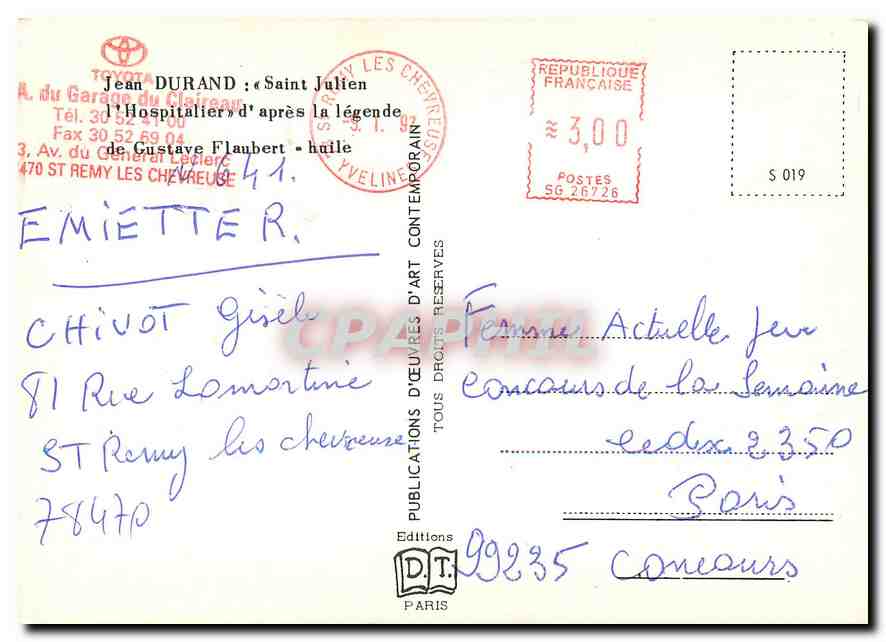 TOYOTA
A. du Garage du Claireau
Tél. 30 52 41 00
Fax 30 52 69 04
3, Av. du Général Leclerc
470 ST REMY LES CHEVREUSE
Jean DURAND : «Saint Julien
l'Hospitalier» d'après la légende
de Gustave Flaubert - huile
ST REMY LES CHEVREUSE
-9. 1. 92
YVELINES
REPUBLIQUE
FRANCAISE
≈ 3,00
POSTES
SG 26726
S 019
41.
EMIETTER.
CHIVOT Gisèle
81 Rue Lamartine
ST Remy les chevreuse
78470
PUBLICATIONS D'ŒUVRES D'ART CONTEMPORAIN
TOUS DROITS RESERVES
Femme Actuelle Jeu
Concours de la Semaine
cedex 2350
Paris
99235 Concours
Editions
D.T.
PARIS
CPAPHIL